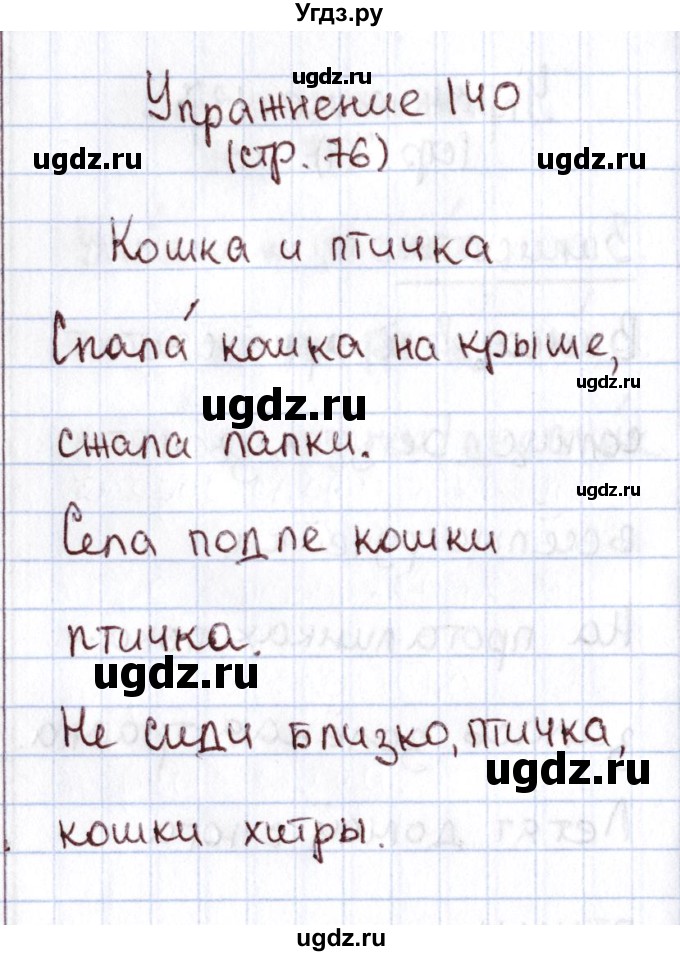 Угдз.ру
ugdz.ru
Упражнение 140
ugdz.ru (стр. 76) ugdz.ru
Кошка и птичка
Спала́ кошка на крыше,
ugdz.ru
ugdz.ru
сжала лапки.
ugdz.ru
Села подле кошки
птичка.
ugdz.ru
Не сиди близко, птичка,
ugdz.ru
кошки хитры.
ugdz.ru